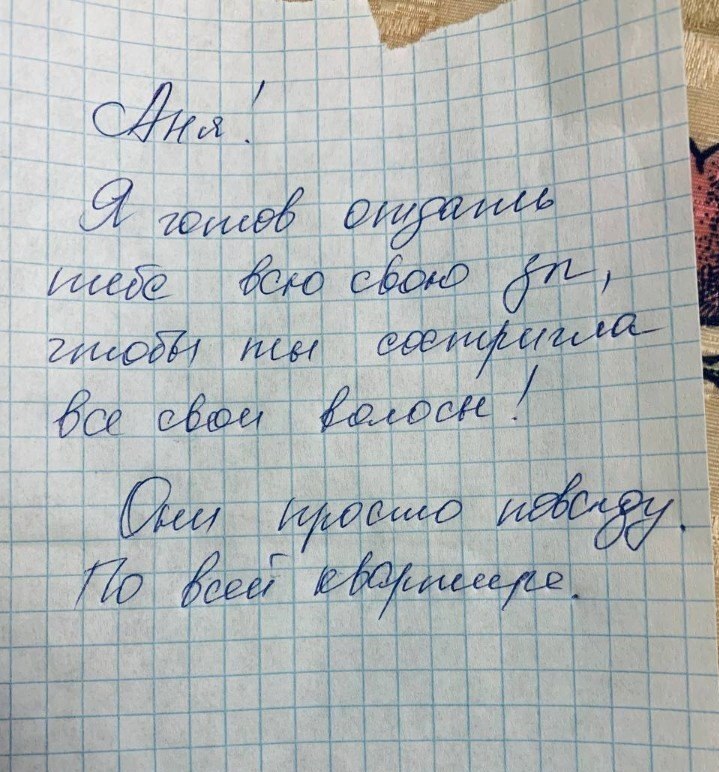 Аня!
Я готов отдать
тебе всю свою зп,
чтобы ты состригла
все свои волосы!
Они просто повсюду.
По всей квартире.